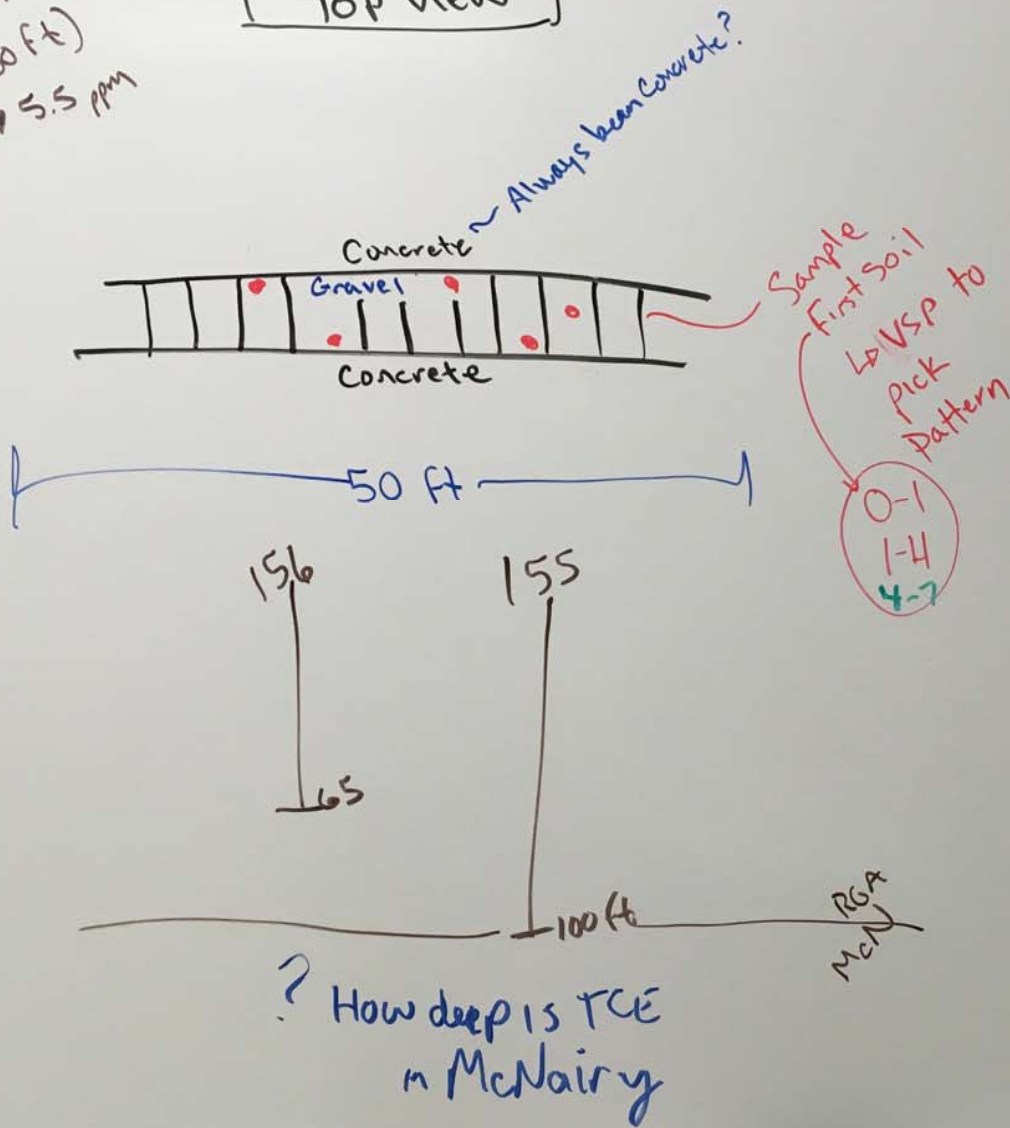 Top View
00 ft)
5.5 ppm
~ Always been Concrete?
Concrete
Gravel
Concrete
Sample
First Soil
↳ VSP to
pick
pattern
50 ft
0-1
1-4
4-7
156
155
65
100 ft
RGA
McN
? How deep is TCE
in McNairy